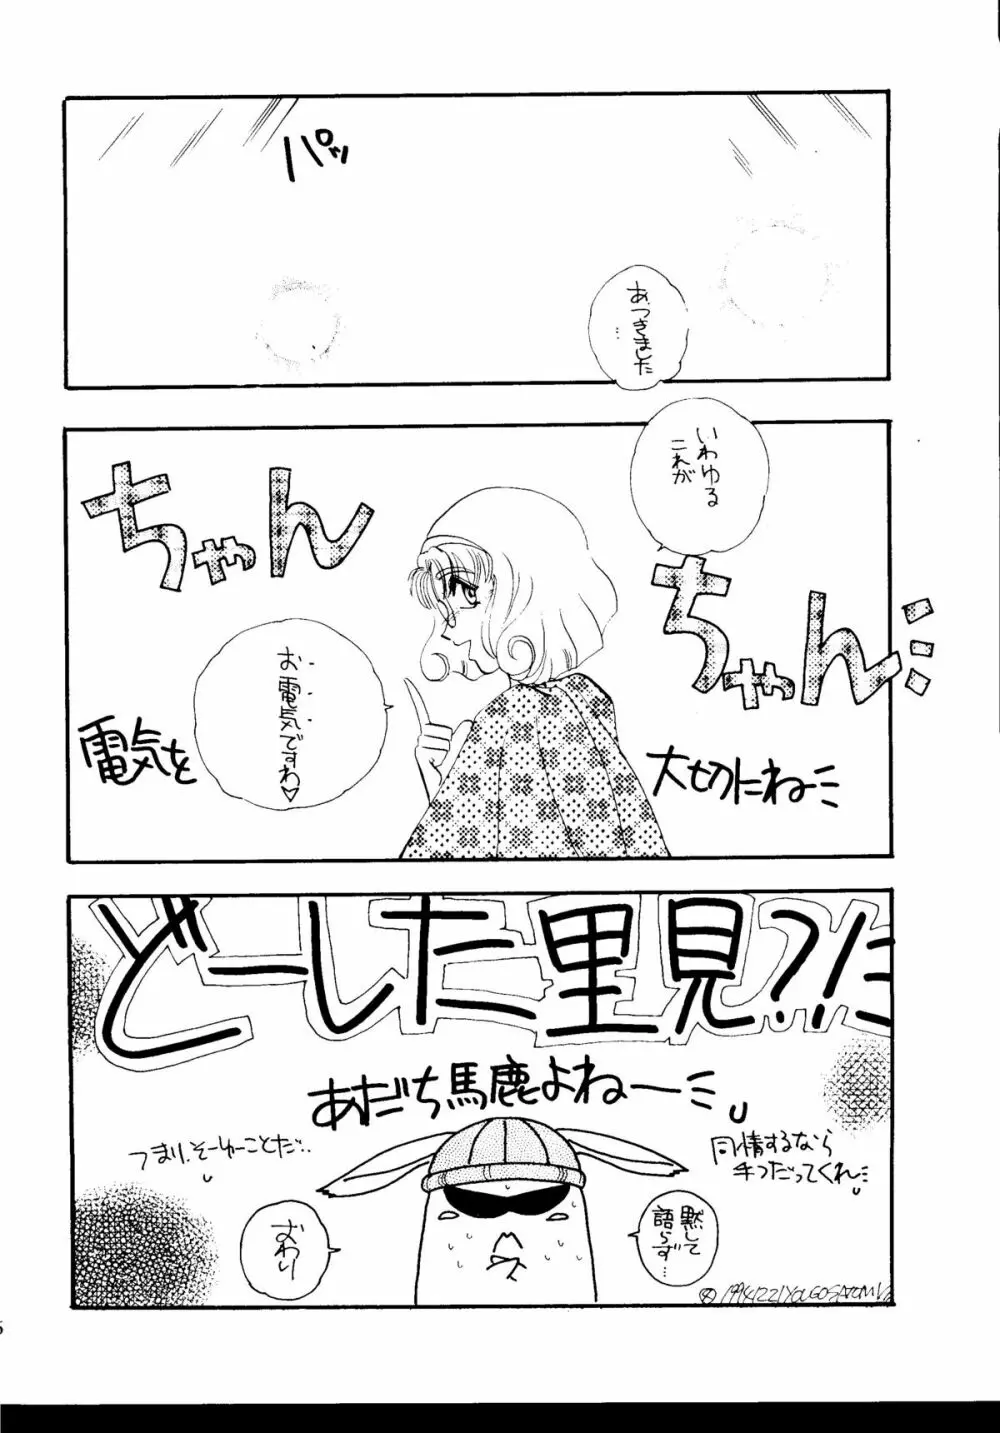 パッ
あつきました
…
いわゆる
これが
ちゃん
ちゃん
お電気ですわ♡
電気を
大切にねー
どーした里見?!だ
あだち馬鹿よねー
つまりそーゆーことだ…
同情するなら
手つだってくれ
おわり
黙して
語らず…